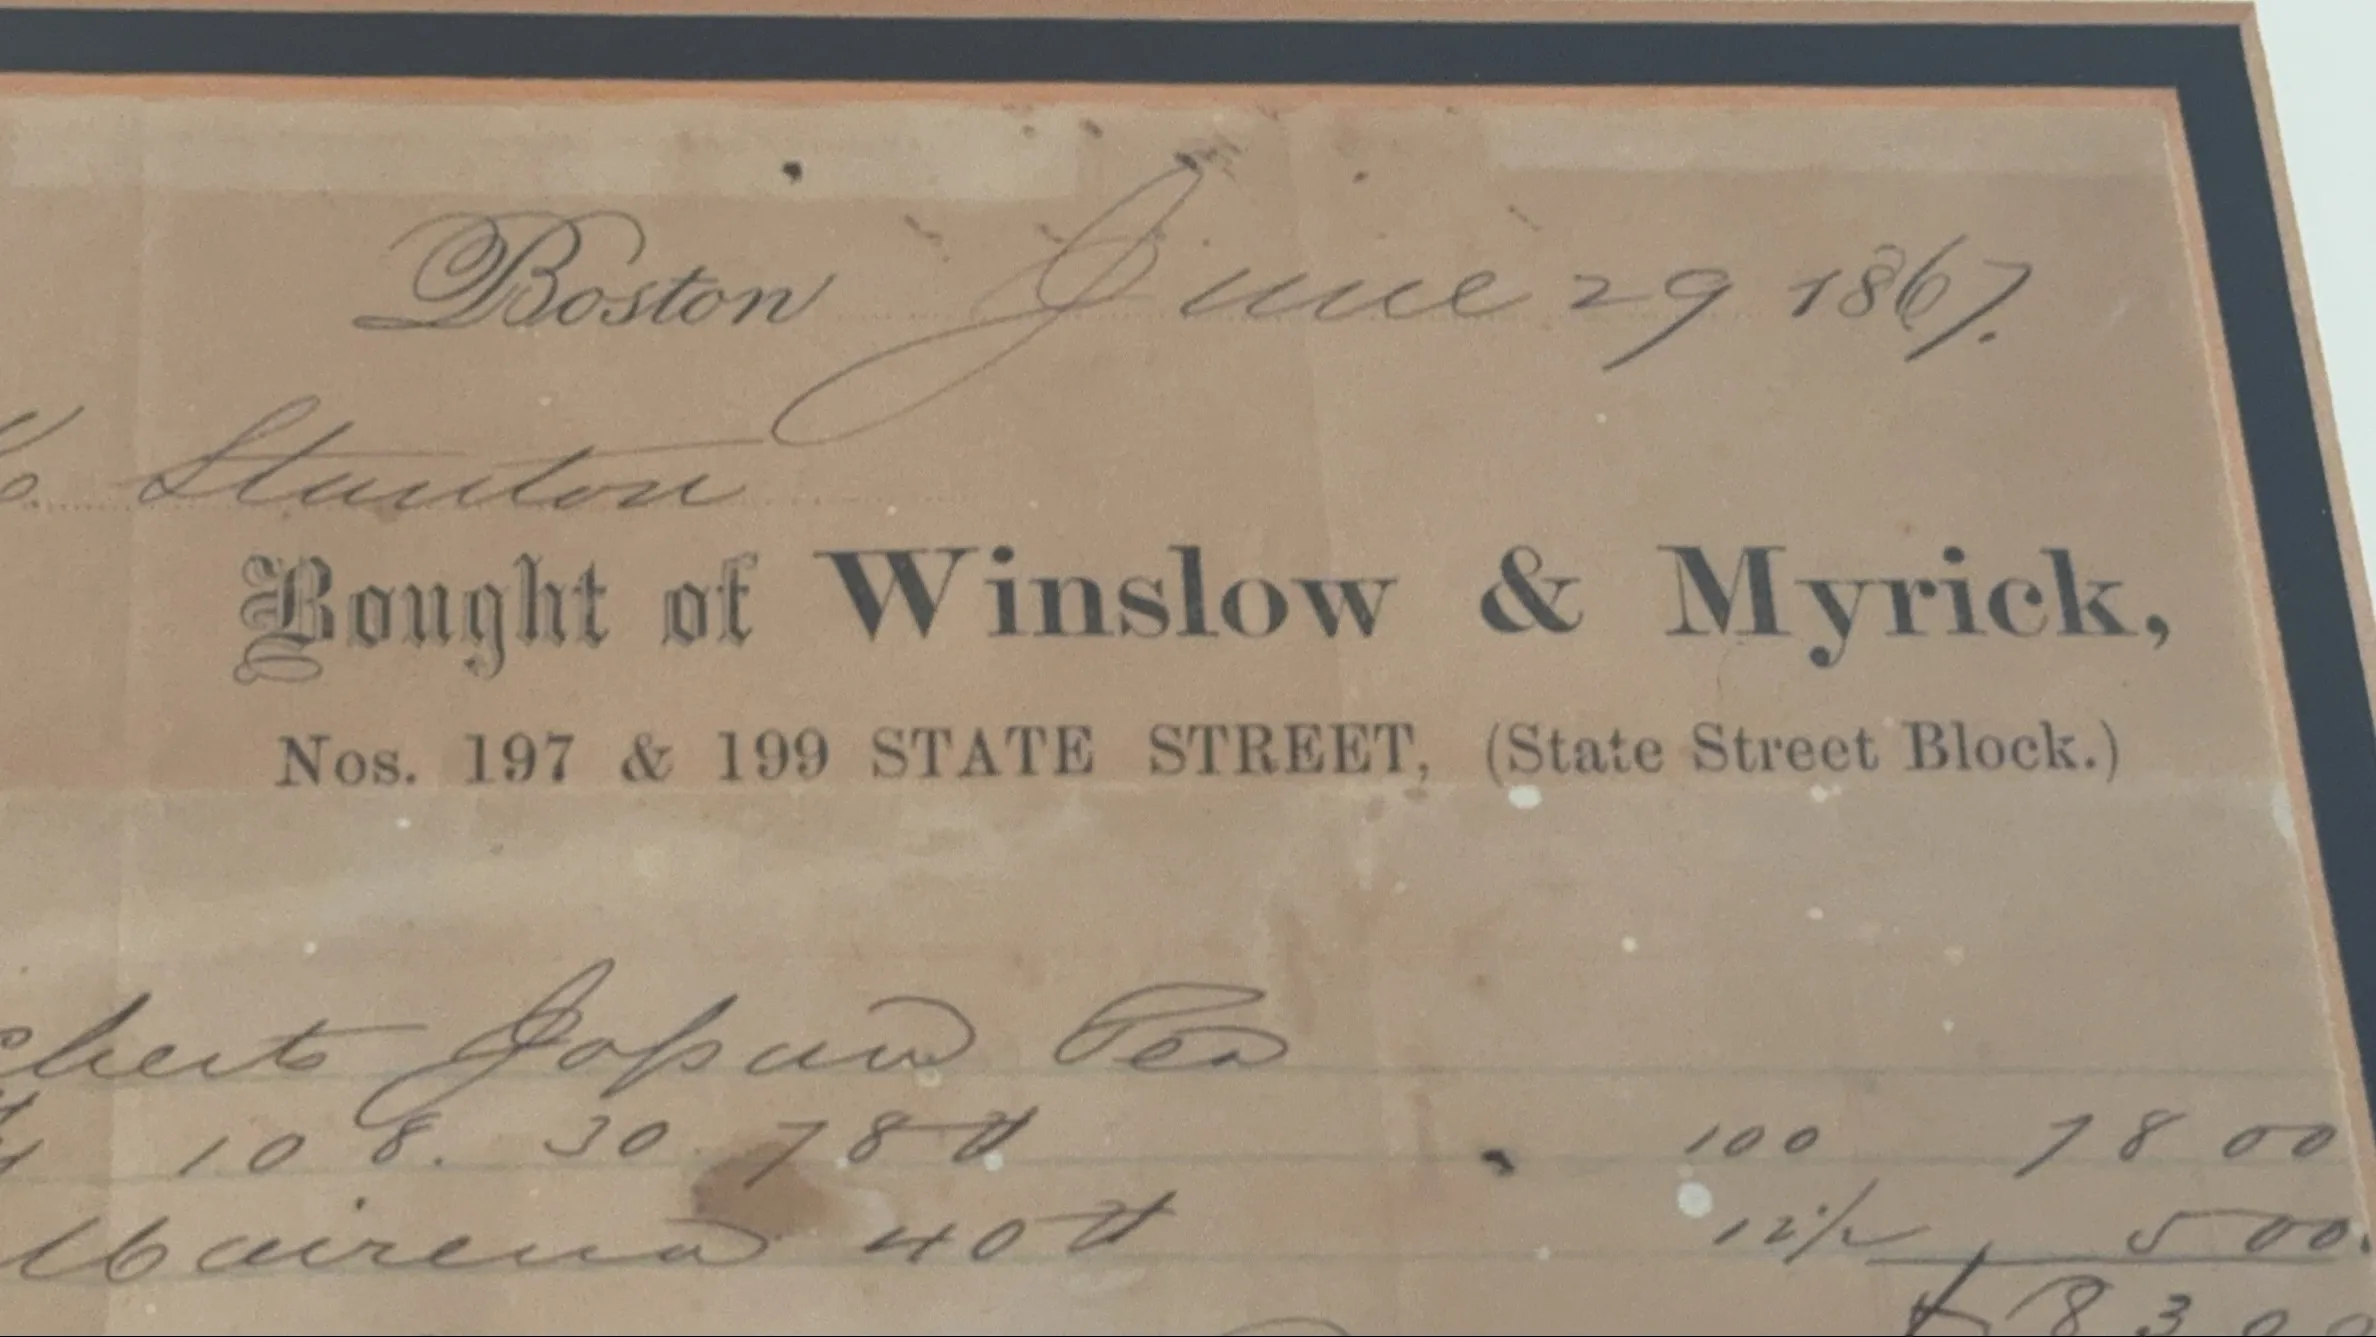 Boston June 29 1867.
Stanton
Bought of Winslow & Myrick,
Nos. 197 & 199 STATE STREET, (State Street Block.)
Chests Japan Tea
108. 30. 78# 100 78 00
40# 12 1/2 5 00.
$ 83 00